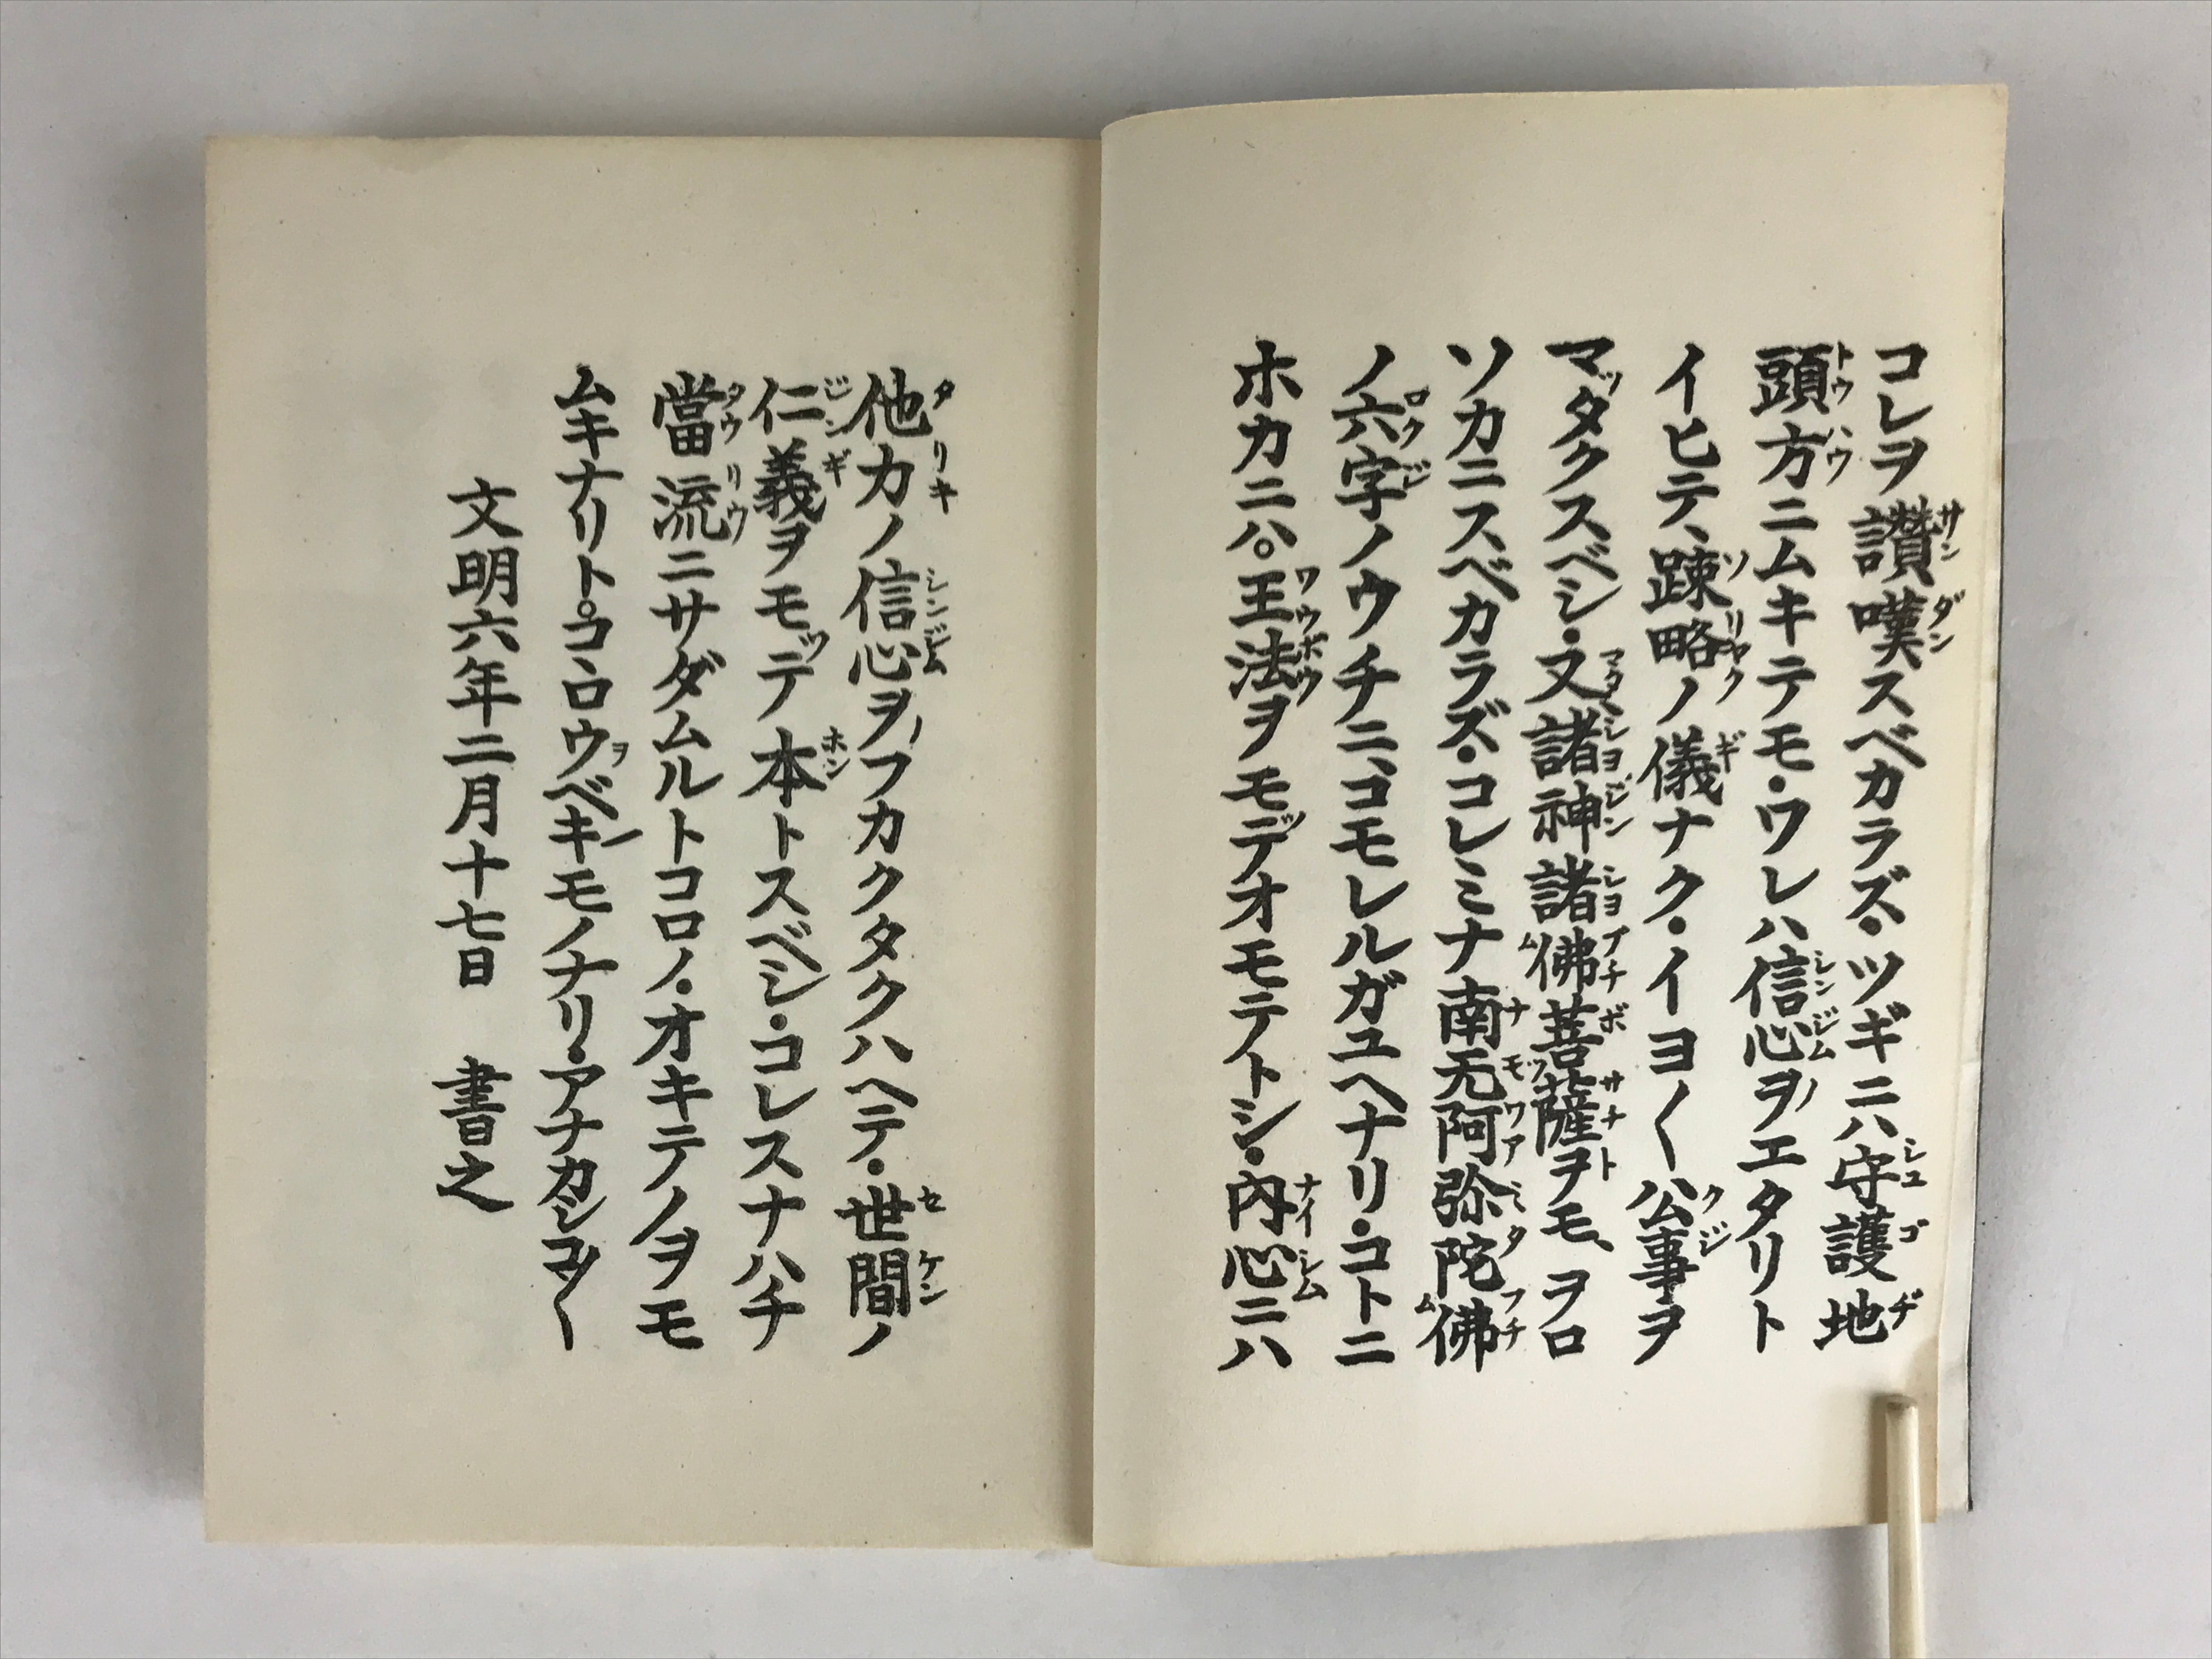 コレヲ讃嘆スベカラズ・ツギニハ守護地
頭方ニムキテモ・ワレハ信心ヲエタリト
イヒテ、踈略ノ儀ナク・イヨ〱公事ヲ
マッタクスベシ・又諸神諸佛菩薩ヲモ、ヲロ
ソカニスベカラズ・コレミナ南无阿弥陀佛
ノ六字ノウチニ、コモレルガユヘナリ・コトニ
ホカニハ。王法ヲモッテオモテトシ・内心ニハ
他力ノ信心ヲフカクタクハヘテ・世間ノ
仁義ヲモッテ本トスベシ・コレスナハチ
當流ニサダムルトコロノ・オキテノヲモ
ムキナリト。コヽロウベキモノナリ・アナカシコ〱
文明六年二月十七日 書之